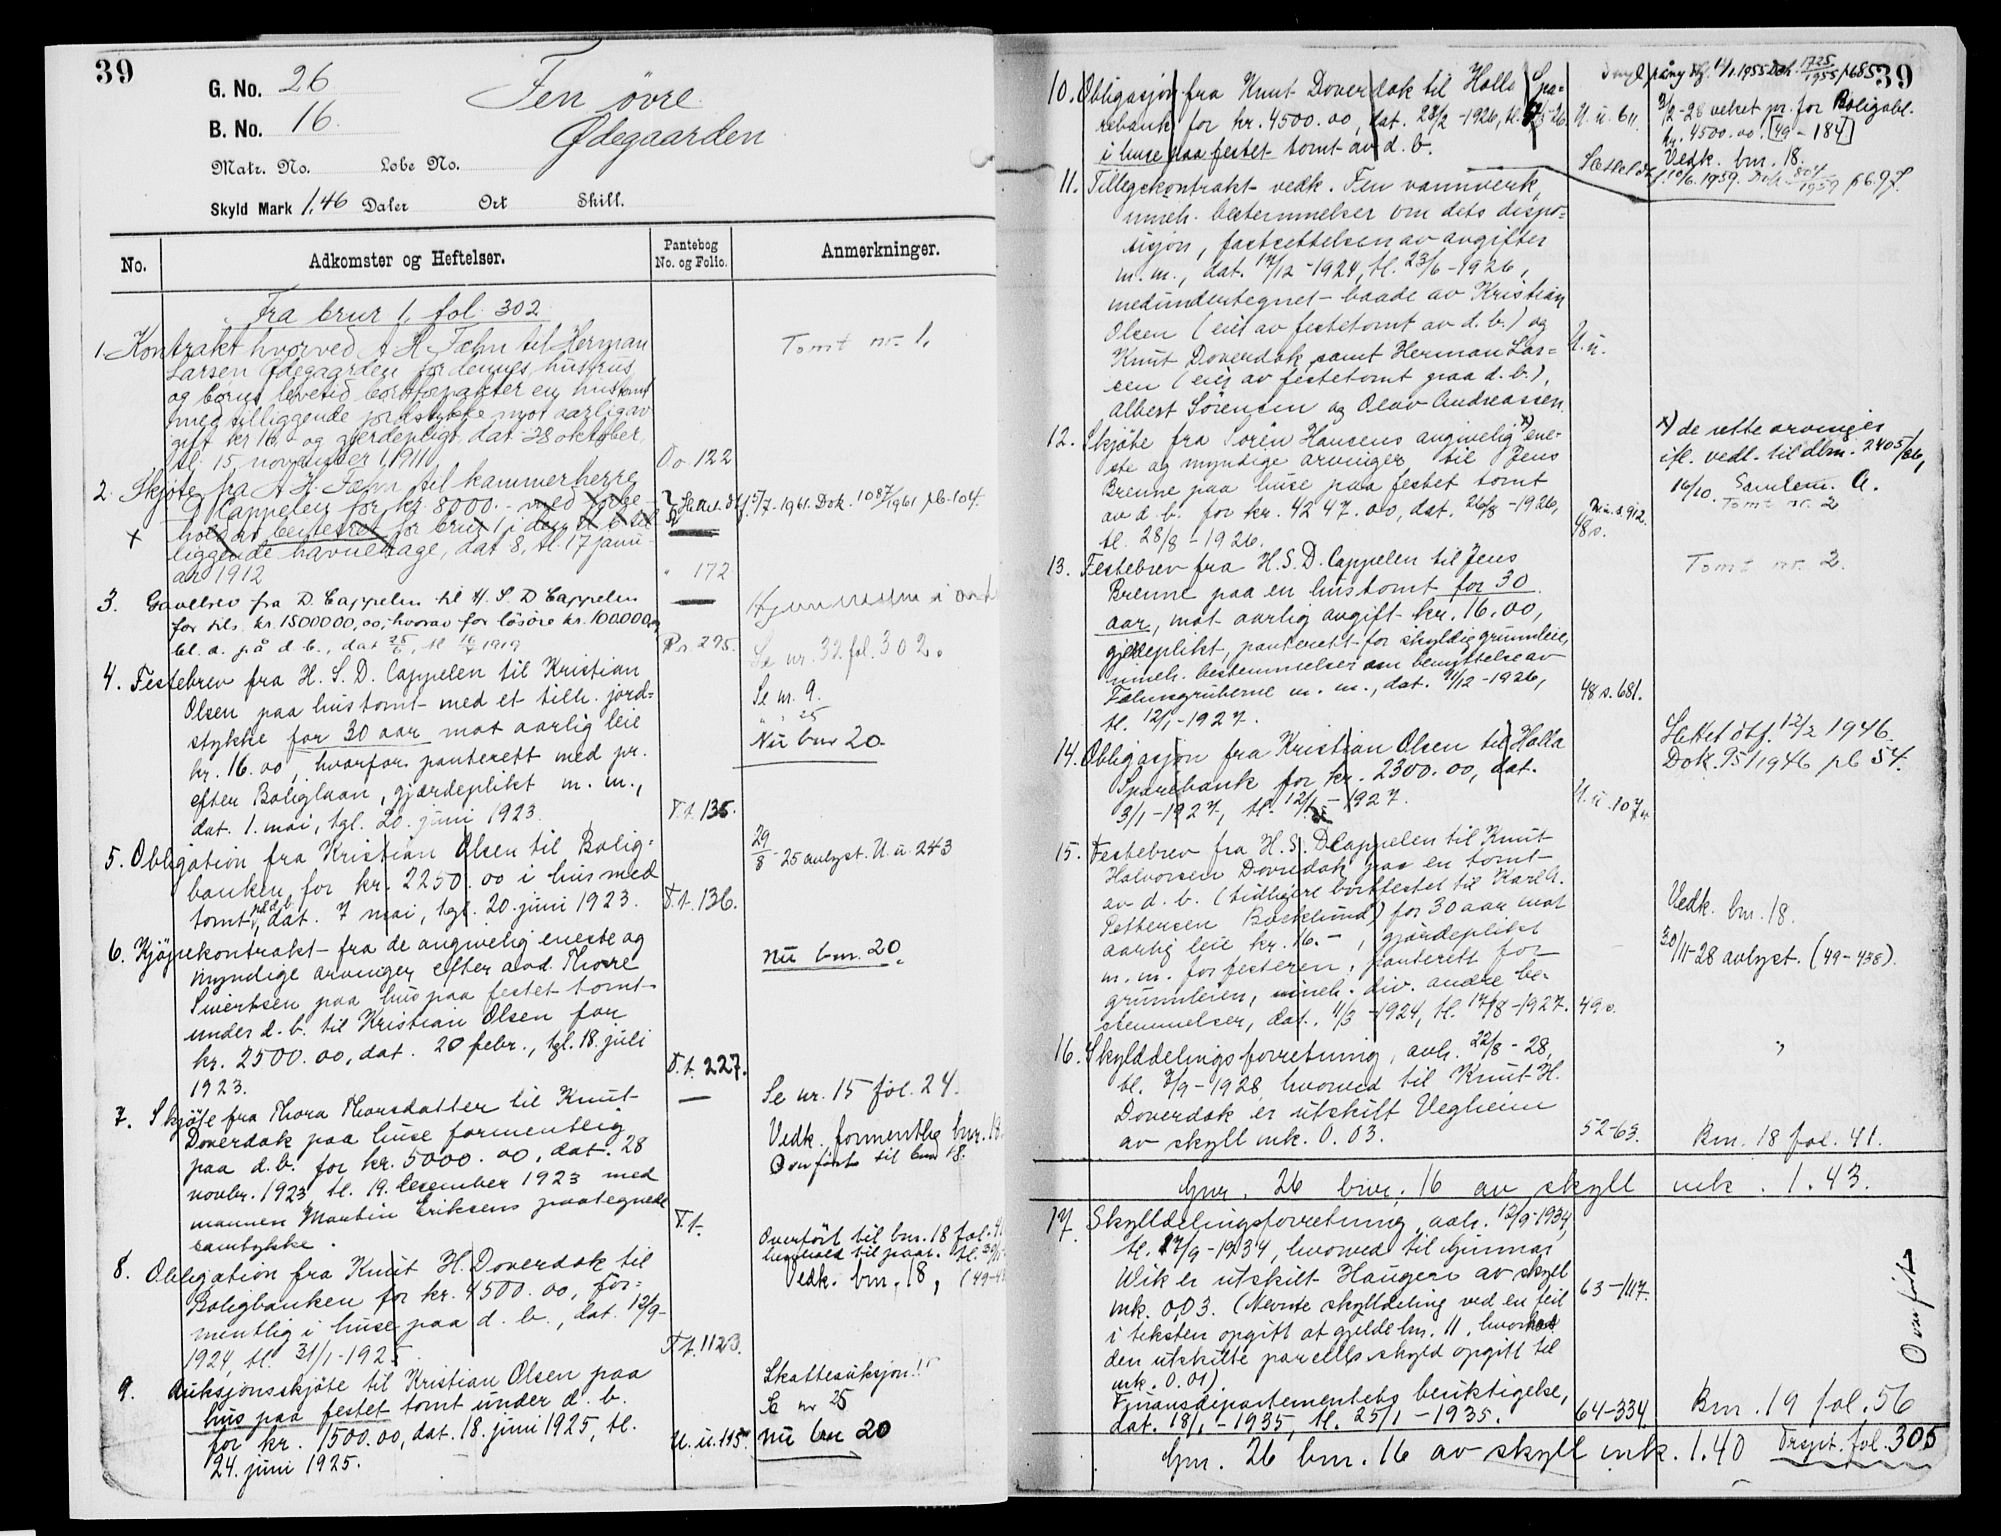 39
G. No. 26
B. No. 16.
Fen øvre
Ødegaarden
Matr. No. Løbe No.
Skyld Mark 1,46 Daler Ort Skill.
No. Adkomster og Heftelser. Pantebog No. og Folio. Anmerkninger.
Fra brnr 1, fol. 302
1 Kontrakt hvorved A H Fæhn til Herman Tomt nr. 1.
Larsen Ødegaarden for dennes, hustrus
og børns levetid bortforpakter en hustomt
med tilliggende jordstykke mot aarlig av
gift kr 16, og gjerdepligt, dat 28 oktober,
tl. 15 november 1911 Oo. 122
2. Skjøte fra A H. Fæhn til kammerherre
D Cappelen for kr. 8000.- med
beiteret for brnr 1 i den d b til Slettet dtf. 5/7-1961. Dok. 1087/1961 pb. 104.
liggende havnehage, dat 8, tl. 17 janu
ar 1912 " 172
3. Gavebrev fra D. Cappelen til H. S D Cappelen Hjemmelsm i
for tils. kr. 1500000,00, hvorav for løsøre kr. 100.000,
bl. a. på d b., dat 25/6, tl 16/7 1919 Rr. 275. Se nr. 32 fol. 302.
4. Festebrev fra H. S. D. Cappelen til Kristian
Olsen paa hustomt med et tillh. jord= Se nr. 9.
stykke for 30 aar mot aarlig leie " " 25
kr. 16.00, hvorfor panterett med pr. Nu bnr 20.
efter Boliglaan, gjærdeplikt m. m.,
dat. 1. mai, tgl. 20. juni 1923. T.t. 135.
5. Obligation fra Kristian Olsen til Bolig- 29/8-25 avlyst. U. u 243
banken, for kr. 2250.00 i hus med
tomt på d. b., dat. 7 mai, tgl. 20. juni 1923. T.t. 136.
6. Kjöpekontrakt fra de angivelig eneste og
myndige arvinger efter avd. Thore nu bnr. 20.
Sivertsen paa hus paa festet tomt
under d. b. til Kristian Olsen for
kr. 2500.00, dat. 20 febr., tgl. 18. juli
1923. T.t. 227.
7. Skjøte fra Thora Thorsdatter til Knut Se nr. 15 fol. 24.
Doverdok paa huse formentlig Vedk. formentlig bnr. 18.
paa d. b. for kr. 5000.00, dat. 28 Overført til bnr 18.
novbr. 1923, tl. 19. desember 1923 med
mannen Martin Eriksens paategnede
samtykke. T.t.
8. Obligation fra Knut H. Doverdok til Overført til bnr. 18 fol. 41
Boligbanken for kr. 4500.00, for= Vedk. bnr. 18, (49-
mentlig i huse paa d. b., dat. 12/9-
1924, tl. 31/1-1925. T.t. 1123.
9. Auksjonsskjøte til Kristian Olsen paa Skatteauksjon!!
hus paa festet tomt under d. b. Se nr 25
for kr. 1500.00, dat. 18. juni 1925, tl. U. u. 115 nu bnr 20
24. juni 1925.
39
10. Obligasjon fra Knut Doverdok til Holla Spa=
rebank for kr. 4500.00, dat. 28/2-1926, U. u. 611. 3/2-28 veket pr. for Boligobl.
i huse paa festet tomt av d. b. kr. 4500.00. [49-184]
Vedk. bnr. 18.
11. Tilleggskontrakt vedk. Fen vannverk, 10/6. 1959. Dok. 804/1959 pb 97.
inneh. bestemmelser om dets dispo=
sisjon, fastsettelsen av avgifter
m. m., dat. 12/12-1924, tl. 23/6-1926,
medundertegnet baade av Kristian
Olsen (eier av festetomt av d. b.) og
Knut Doverdok samt Herman Lar= U. u.
sen (eier av festetomt paa d. b.),
Albert Sørensen og Olav Andreassen.
12. Skjöte fra Soren Hansens angivelig x) ene- x) de rette arvinger
ste og myndige arvinger til Jens ifl. vedl. til dbnr. 2405/26,
Brenne paa huse paa festet tomt 16/10. Samlem. A.
av d. b. for kr. 4247.00, dat. 26/8-1926, Tomt nr. 2
tl. 28/8-1926.
13. Festebrev fra H. S. D. Cappelen til Jens Tomt nr. 2.
Brenne paa en hustomt for 30
aar, mot aarlig avgift kr. 16.00,
gjerdeplikt, panterett for skyldig grunnleie,
inneh. bestemmelser om benyttelse av
Fehnsgruberne m. m., dat. 11/12-1926, 48 s. 681.
tl. 12/1-1927.
14. Obligasjon fra Kristian Olsen til Holla Slettet dtf. 12/2 1946.
Sparebank for kr. 2300.00, dat. Dok. 95/1946 pb 54.
3/1-1927, tl. 12/1-1927. U. u. 107
15. Festebrev fra H. S. D Cappelen til Knut
Halvorsen Doverdok paa en tomt
av d. b. (tidligere bortfestet til Karl A. Vedk. bnr. 18.
Pettersen) for 30 aar mot
aarlig leie kr. 16.-, gjærdeplikt 30/11-28 avlyst. (49-438).
m. m. for festeren, panterett for
grunnleien, inneh. div. andre be-
stemmelser, dat. 11/3-1924, tl. 17/8-1927. 49 s.
16. Skylddelingsforretning, avh. 22/8-28, "
tl. 3/9-1928, hvorved til Knut H.
Doverdok er utskilt Vegheim
av skyll mk. 0.03. 52-63. Bnr. 18 fol. 41.
Gnr. 26 bnr. 16 av skyll mk. 1.43.
17. Skylldelingsforretning, avh. 12/9-1934,
tl. 17/9-1934, hvorved til Gunnar
Wik er utskilt Haugen av skyll 63-117.
mk. 0,03. (Nevnte skylldeling ved en feil
i teksten opgitt at gjelde bnr. 11, hvorhos
den utskilte parcells skyld opgitt til
mk. 0.01).
Finansdepartementets beriktigelse,
dat. 18/1-1935, tl. 25/1-1935. 64-334 Bnr. 19 fol. 56
Overført
Gnr. 26 bnr. 16 av skyll mk. 1.40 Trspt. fol. 305